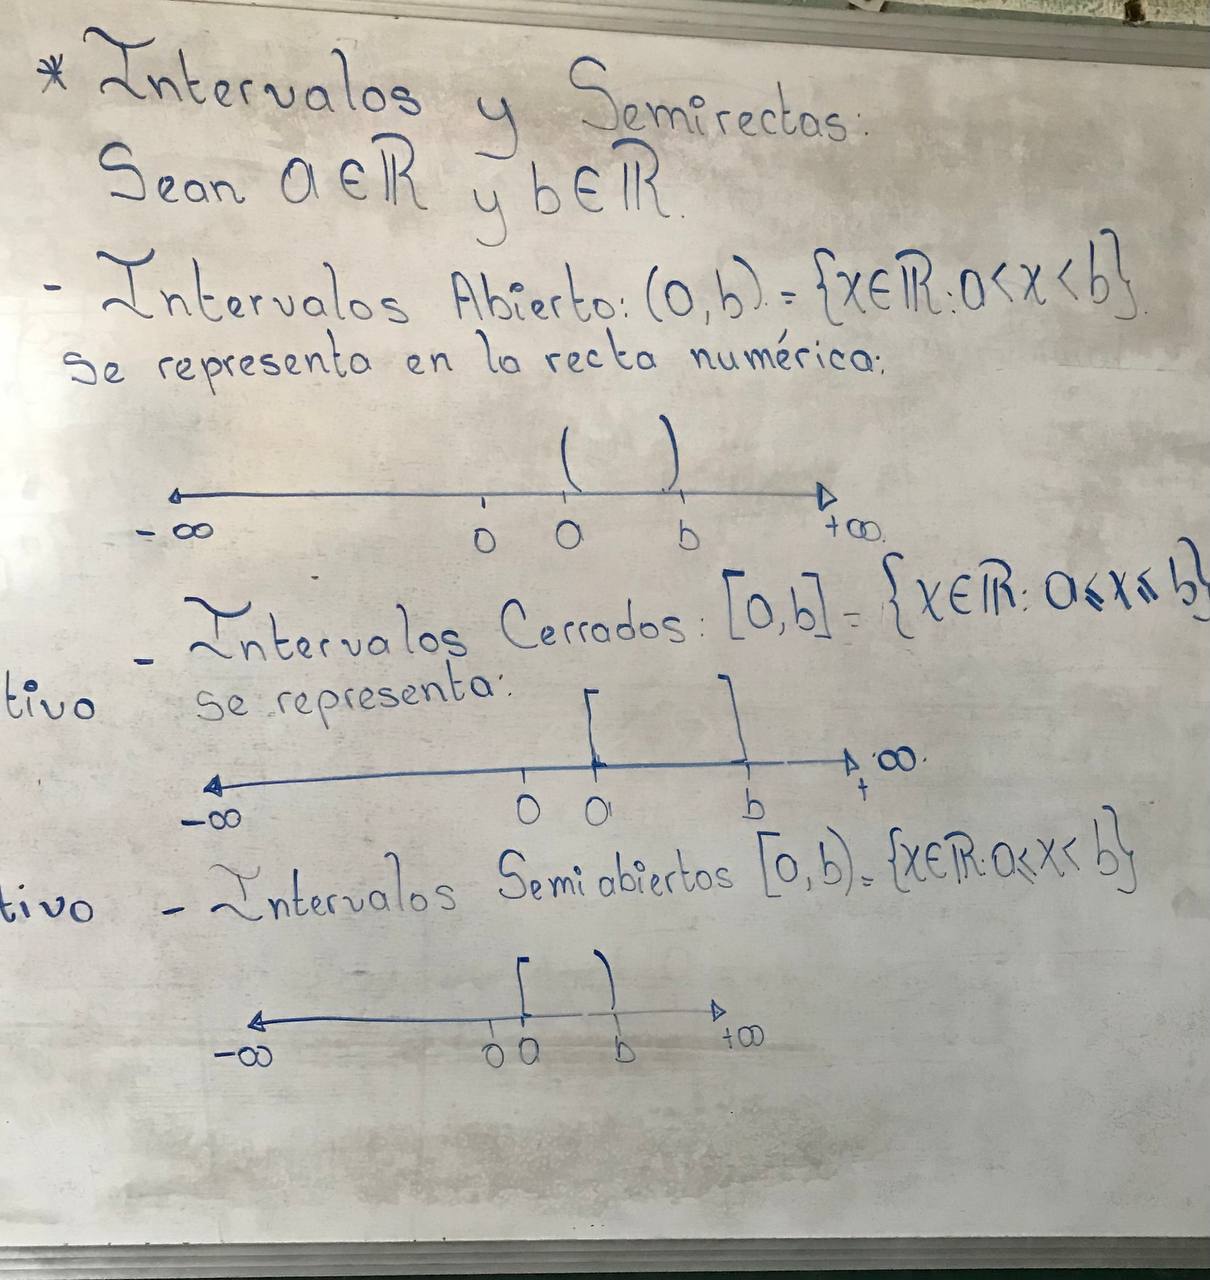 * Intervalos y Semirectas:
Sean a ∈ ℝ y b ∈ ℝ.
- Intervalos Abierto: (a,b) = {x∈ℝ: a<x<b}.
Se representa en la recta numérica:
( )
-∞ 0 a b +∞.
- Intervalos Cerrados: [a,b] = {x∈ℝ: a⩽x⩽b}
tivo se representa:
[ ]
-∞ 0 a b +∞.
tivo - Intervalos Semiabiertos [a,b) = {x∈ℝ: a⩽x<b}
[ )
-∞ 0 a b +∞